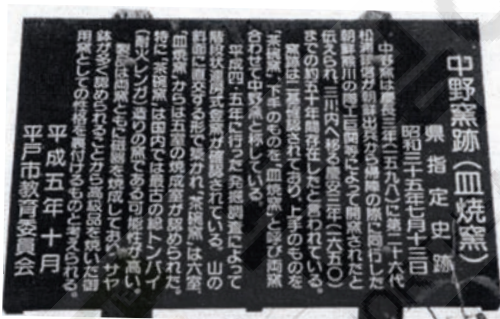 中野窯跡(皿焼窯)
県指定史跡
昭和三十五年七月十三日
中野窯は慶長三年(一五九八)に第二十六代
松浦鎮信が朝鮮出兵から帰陣の際に同行した
朝鮮熊川の陶工巨関等によって開窯されたと
伝えられ、三川内へ移る慶安三年(一六五〇)
までの約五十年間存在したと言われている。
窯跡は二基確認されており、上手のものを
「茶碗窯」、下手のものを「皿焼窯」と呼び両窯
合わせて中野窯と称している。
平成四・五年に行った発掘調査によって
階段状連房式登窯が確認されている。山の
斜面に直交する形で築かれ、「茶碗窯」は六室、
「皿焼窯」からは五室の焼成室が認められた。
特に「茶碗窯」は国内では最古の総トンバイ
(耐火レンガ)造りの窯である可能性が高い。
製品は両窯ともに磁器を焼成しており、サヤ
鉢が多く認められることから高級品を焼いた御
用窯としての性格を裏付けるものと考えられる。
平成五年十月
平戸市教育委員会